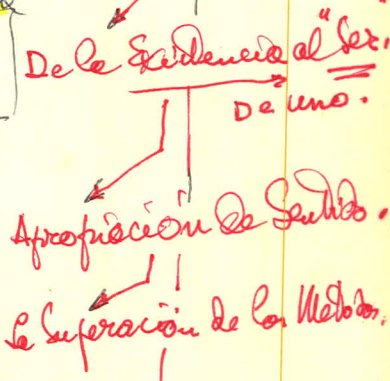 De la Existencia al "Ser.
De uno.
Apropiación de Sentido.
La Superación de los Metodos.